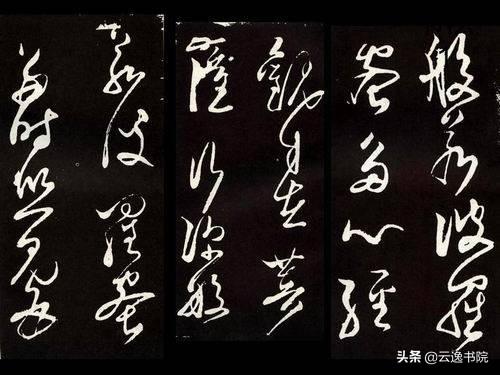 般若波羅
蜜多心經
觀自在菩
薩行深般
若波羅蜜
多時照見五
头条 @云逸书院